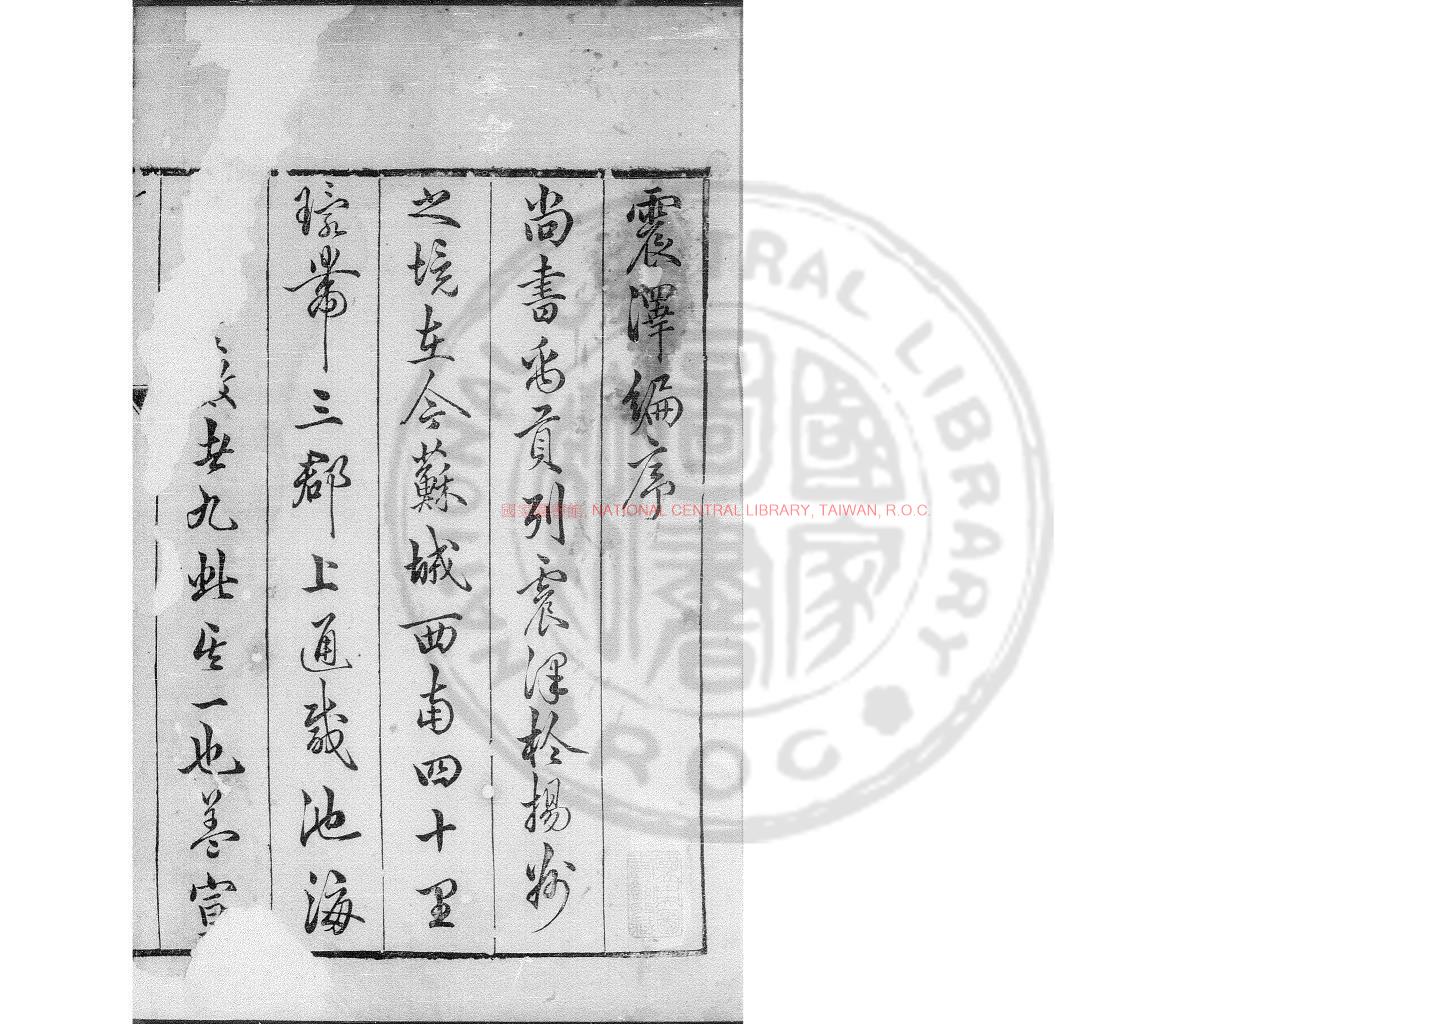 震澤編序
尚書禹貢列震澤於揚州
之境在今蘇城西南四十里
環帶三郡上通咸池海
九此其一也蓋
國家圖書館, NATIONAL CENTRAL LIBRARY, TAIWAN, R.O.C.
NATIONAL CENTRAL LIBRARY
ROC
國家圖書館